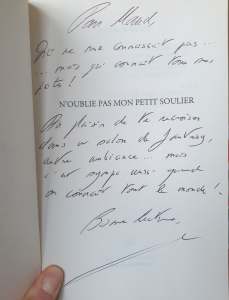 Pour Maud,
Qui ne me connaissait pas...
... mais qui connait tous mes
potes !
N'OUBLIE PAS MON PETIT SOULIER
Au plaisir de te revoir
dans un salon de
autre ambiance... mais
c'est sympa aussi quand
on connait tout le monde !
Bonne lecture,